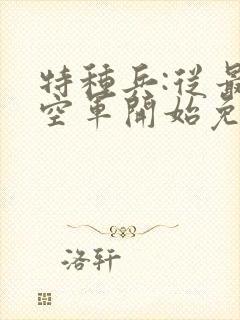 特種兵:從最
空軍開始免
洛軒